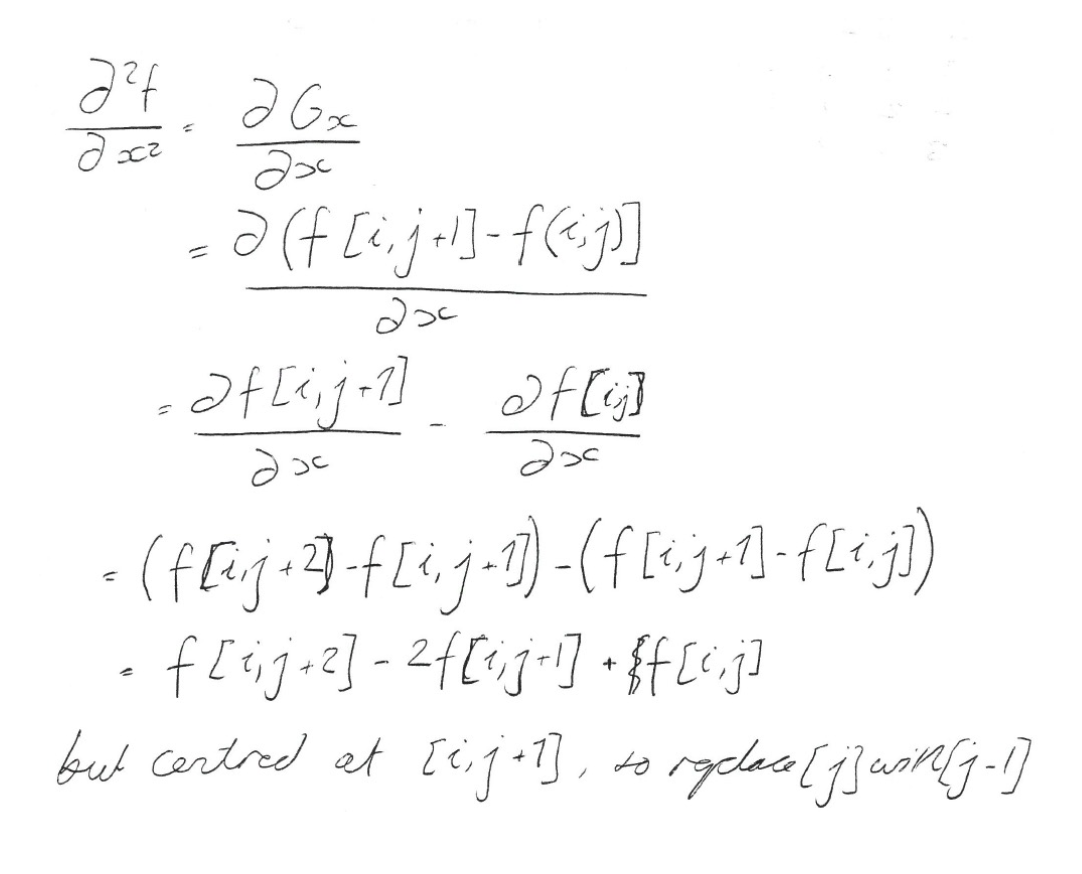 ∂²f/∂x² = ∂Gx/∂x
= ∂(f[i,j+1]-f(i,j)]/∂x
= ∂f[i,j+1]/∂x - ∂f[i,j]/∂x
= (f[i,j+2]-f[i,j+1])-(f[i,j+1]-f[i,j])
= f[i,j+2]-2f[i,j+1]+f[i,j]
but centred at [i,j+1], so replace [j] with [j-1]